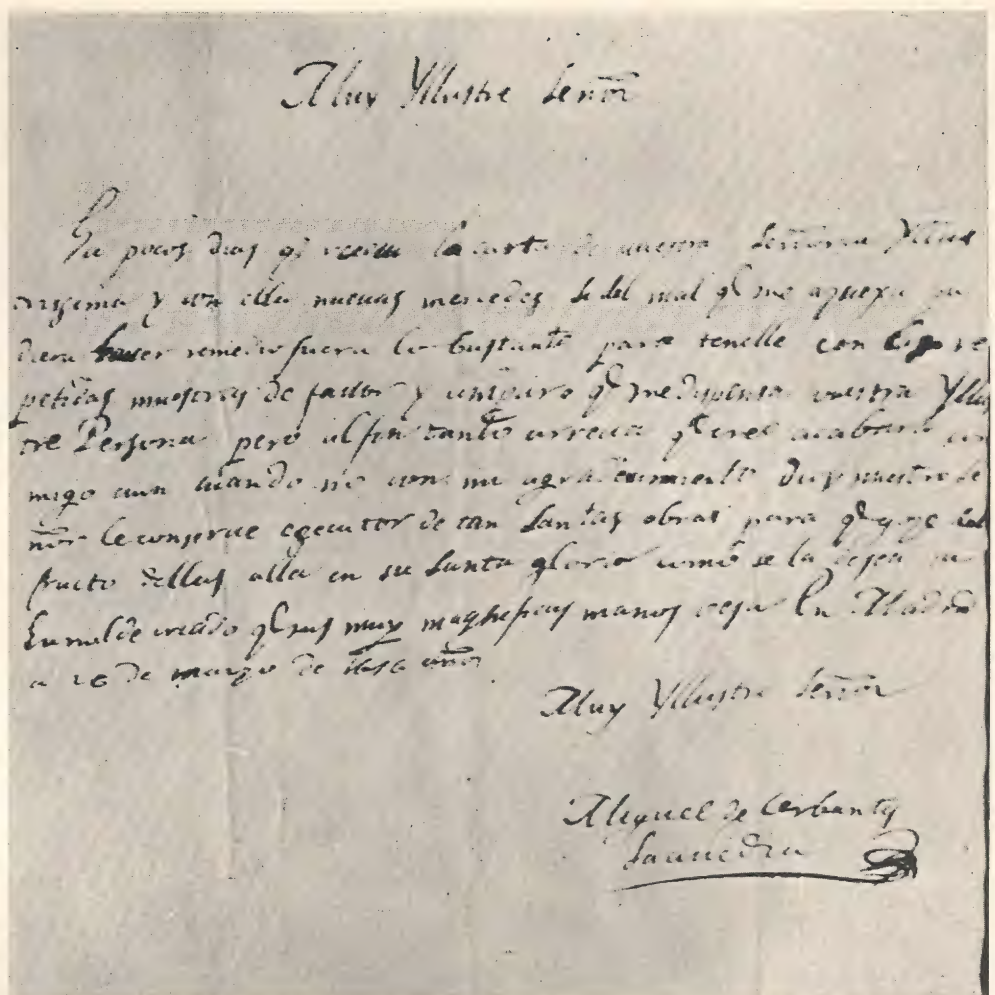 Muy Yllustre Señor
Ha pocos dias q̃ receui la carta de vuestra Señoria Yllus
trissima y con ella nueuas mercedes. Si del mal q̃ me aquexa pu
diera hauer remedio fuera lo bastante para tenelle con las re
petidas muestras de fauor y amparo q̃ me dispensa vuestra Yllus
tre Persona pero al fin tanto arrecia q̃ creo acabara con
migo aun cuando no con mi agradecimiento Dios nuestro Se
ñor le conserue egecutor de tan Santas obras para q̃ goze del
fructo dellas alla en su Santa gloria como se la desea su
humilde criado q̃ sus muy magnificas manos vesa En Madrid
a 26 de marzo de 1616 años
Muy Yllustre Señor
Miguel de Cerbantes
Saauedra